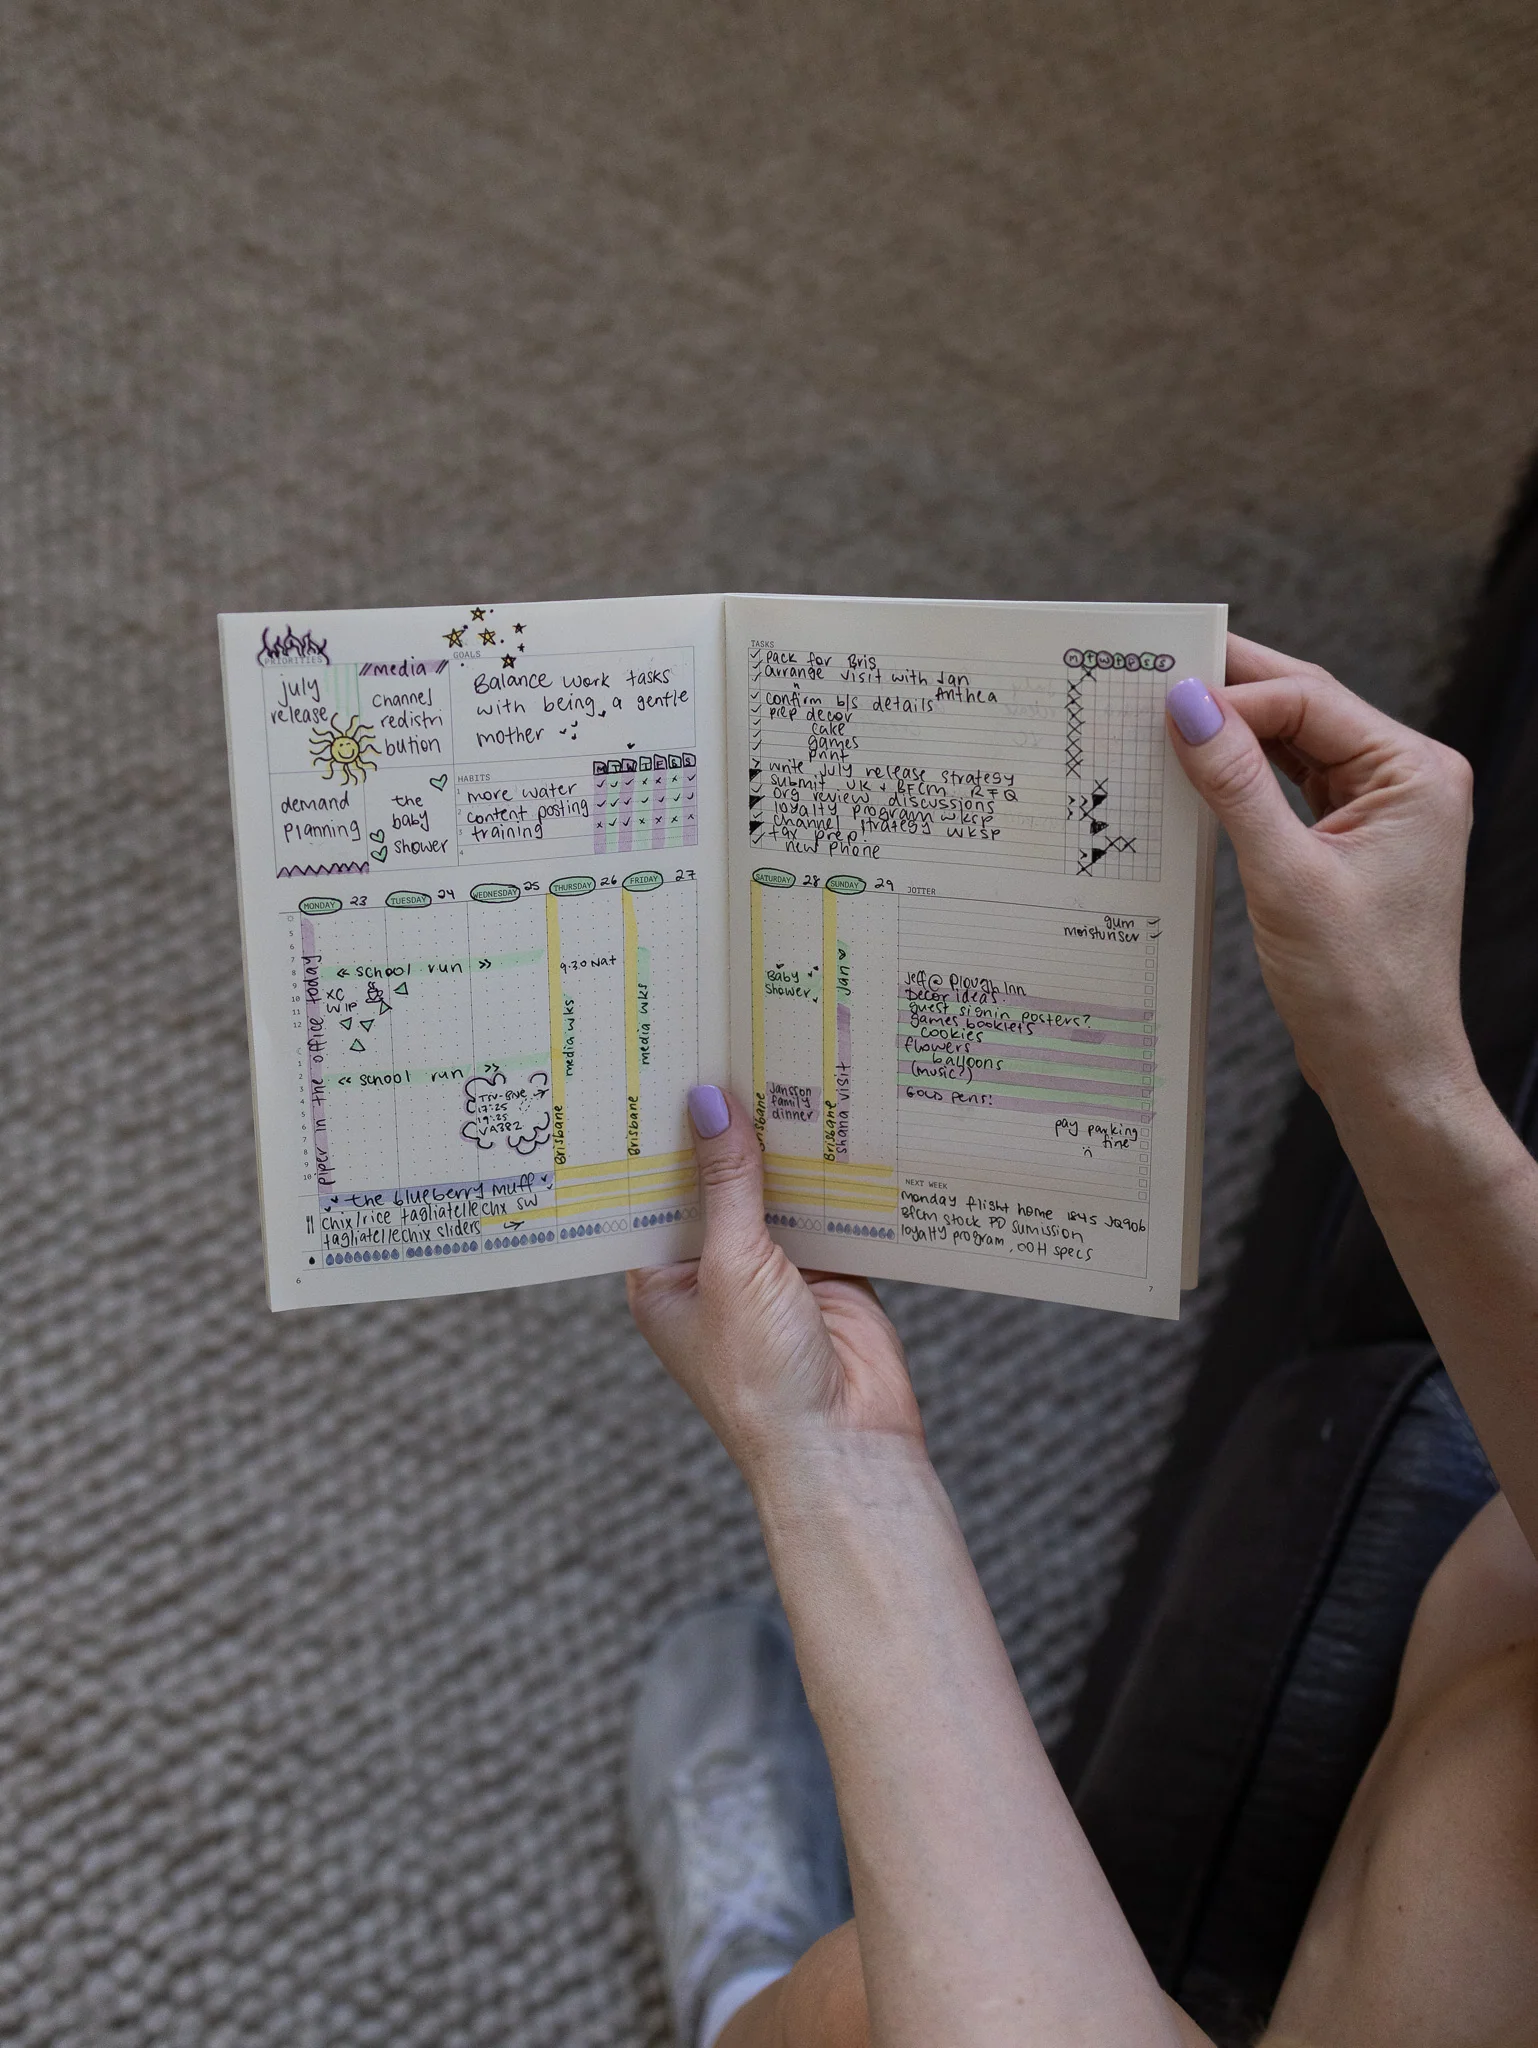 PRIORITIES
july
release
// media //
channel
redistri
bution
demand
planning
the
baby
shower
GOALS
Balance work tasks
with being a gentle
mother
HABITS
M T W T F S S
1 more water
2 content posting
3 training
4
MONDAY 23
TUESDAY 24
WEDNESDAY 25
THURSDAY 26
FRIDAY 27
piper in the office today
<< school run >>
XC
WIP
<< school run >>
17:25
19:25
VA382
9.30 Nat
media wks
Brisbane
media wks
Brisbane
the blueberry muff
chix/rice tagliatelle chx sw
tagliatelle chix sliders
6
TASKS
m t w t f s s
pack for Bris
arrange visit with Jan
Anthea
confirm b/s details
prep decor
cake
games
print
write july release strategy
submit UK + BFCM RFQ
org review discussions
loyalty program wksp
channel strategy wksp
tax prep
new phone
SATURDAY 28
SUNDAY 29
Baby
shower
Jansson
family
dinner
Brisbane
Jan
shana visit
Brisbane
JOTTER
gum
moisturiser
jeff @ Plough Inn
Decor ideas
guest signin posters?
games booklets
cookies
flowers
balloons
(music?)
Gold pens!
pay parking
fine
NEXT WEEK
monday flight home 1845 JQ906
BFCM stock PD sumission
loyalty program, OOH specs
7